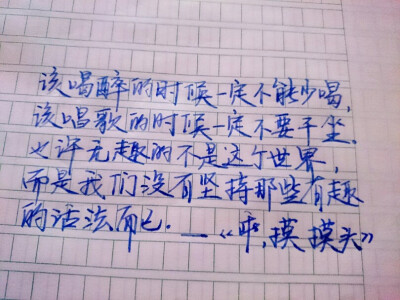 该喝醉的时候一定不能少喝,
该唱歌的时候一定不要干坐.
也许无趣的不是这个世界,
而是我们没有坚持那些有趣
的活法而已.——《乖,摸摸头》